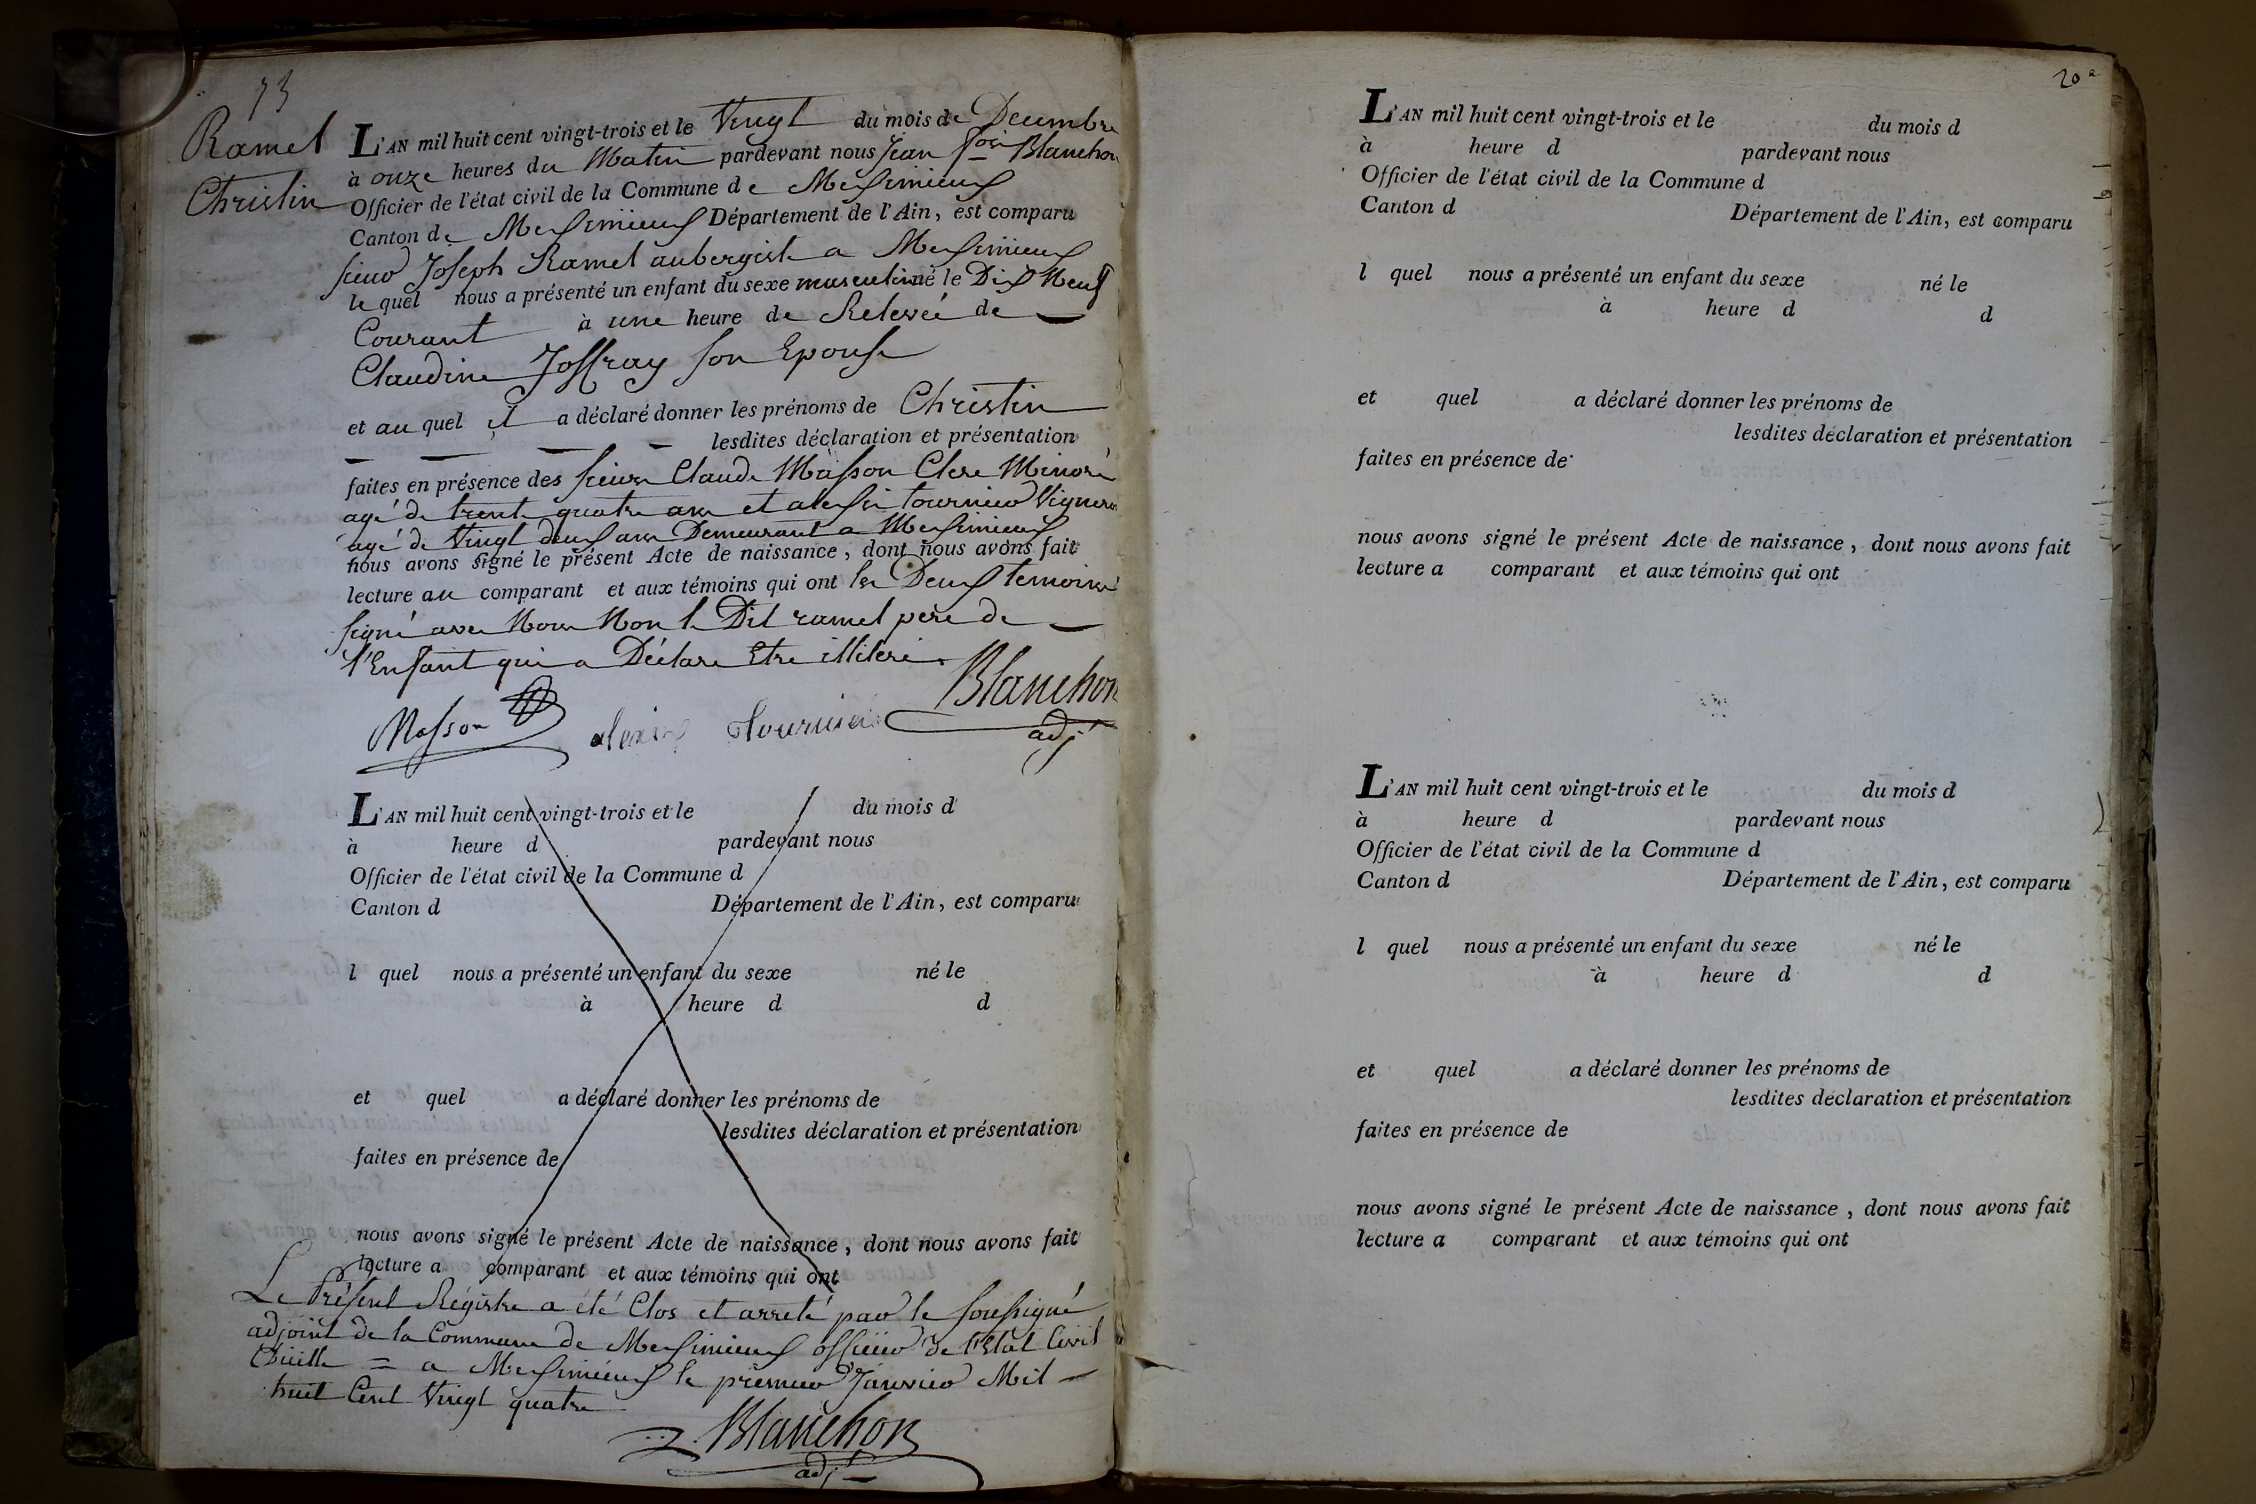 73
Ramel
Christin
L'AN mil huit cent vingt-trois et le Vingt du mois de Decembre
à onze heures du Matin pardevant nous Jean Blanchon
Officier de l'état civil de la Commune de Messimieux
Canton de Messimieux Département de l'Ain, est comparu
sieur Joseph Ramel aubergiste a Messimieux
le quel nous a présenté un enfant du sexe masculin né le Dix Neuf
Courant à une heure de Relevée de
Claudine Joffray son Epouse
et au quel il a déclaré donner les prénoms de Christin
lesdites déclaration et présentation
faites en présence des sieurs Claude Masson Clerc Minoré
agé de trente quatre ans et alexis tournier Vigneron
agé de Vingt deux ans Demeurant a Messimieux
nous avons signé le présent Acte de naissance, dont nous avons fait
lecture au comparant et aux témoins qui ont les Deux temoins
signé avec Nous Non le Dit ramel pere de
l'Enfant qui a Déclare Etre illiteré.
Blanchon
adj.
Masson
alexis tournier
L'AN mil huit cent vingt-trois et le du mois d
à heure d pardevant nous
Officier de l'état civil de la Commune d
Canton d Département de l'Ain, est comparu
l quel nous a présenté un enfant du sexe né le
à heure d d
et quel a déclaré donner les prénoms de
lesdites déclaration et présentation
faites en présence de
nous avons signé le présent Acte de naissance, dont nous avons fait
lecture a comparant et aux témoins qui ont
Le Présent Régistre a été Clos et arreté par le soussigné
adjoint de la Commune de Messimieux officier de l'Etat Civil
= a Messimieux le premier Janvier Mil
huit Cent Vingt quatre
Blanchon
adj.
20
L'AN mil huit cent vingt-trois et le du mois d
à heure d pardevant nous
Officier de l'état civil de la Commune d
Canton d Département de l'Ain, est comparu
l quel nous a présenté un enfant du sexe né le
à heure d d
et quel a déclaré donner les prénoms de
lesdites déclaration et présentation
faites en présence de
nous avons signé le présent Acte de naissance, dont nous avons fait
lecture a comparant et aux témoins qui ont
L'AN mil huit cent vingt-trois et le du mois d
à heure d pardevant nous
Officier de l'état civil de la Commune d
Canton d Département de l'Ain, est comparu
l quel nous a présenté un enfant du sexe né le
à heure d d
et quel a déclaré donner les prénoms de
lesdites déclaration et présentation
faites en présence de
nous avons signé le présent Acte de naissance, dont nous avons fait
lecture a comparant et aux témoins qui ont